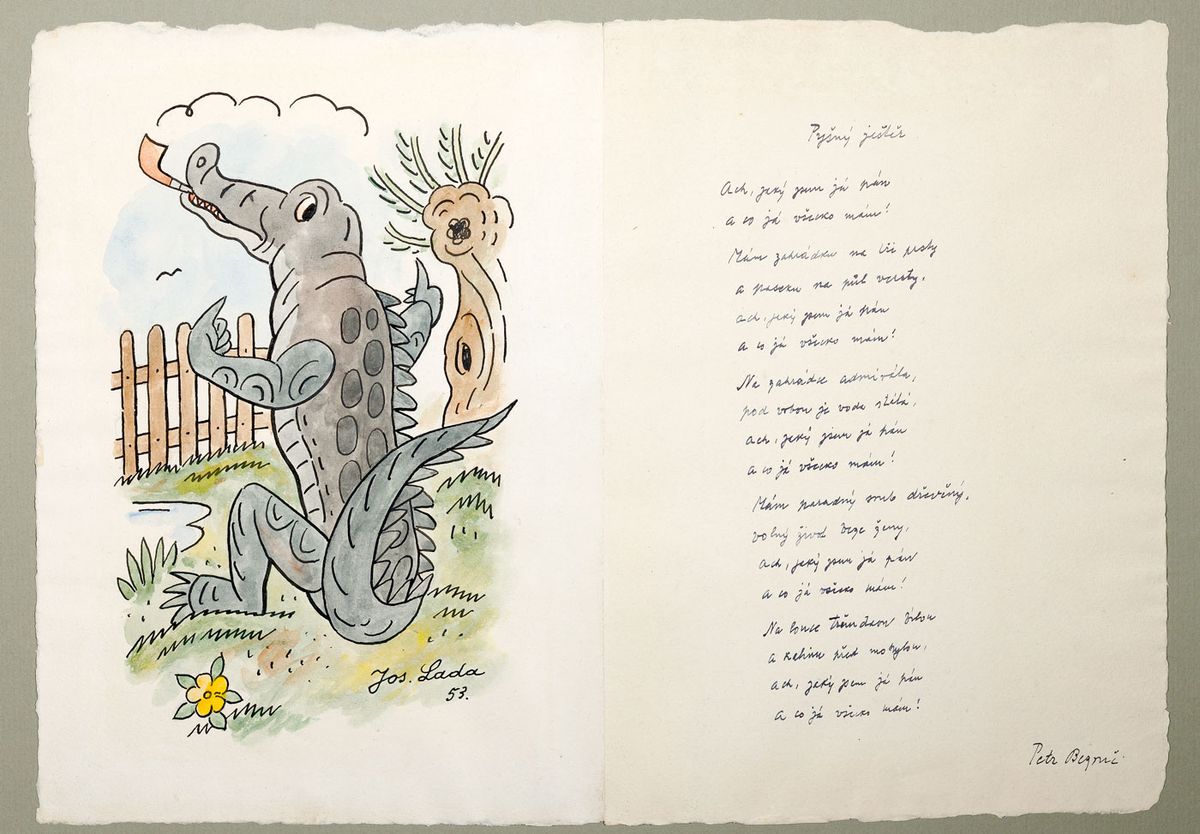 Jos. Lada
53.
Pyšný ještěr
Ach, jaký jsem já pán
a co já všecko mám!
Mám zahrádku na tři prsty
a paseku na půl versty,
ach, jaký jsem já pán
a co já všecko mám!
Na zahrádce admirála,
pod vrbou je voda stálá,
ach, jaký jsem já pán
a co já všecko mám!
Mám parádný srub dřevěný,
volný život beze ženy,
ach, jaký jsem já pán
a co já všecko mám!
Na louce
a kalinu před mohylou,
ach, jaký jsem já pán
a co já všecko mám!
Petr